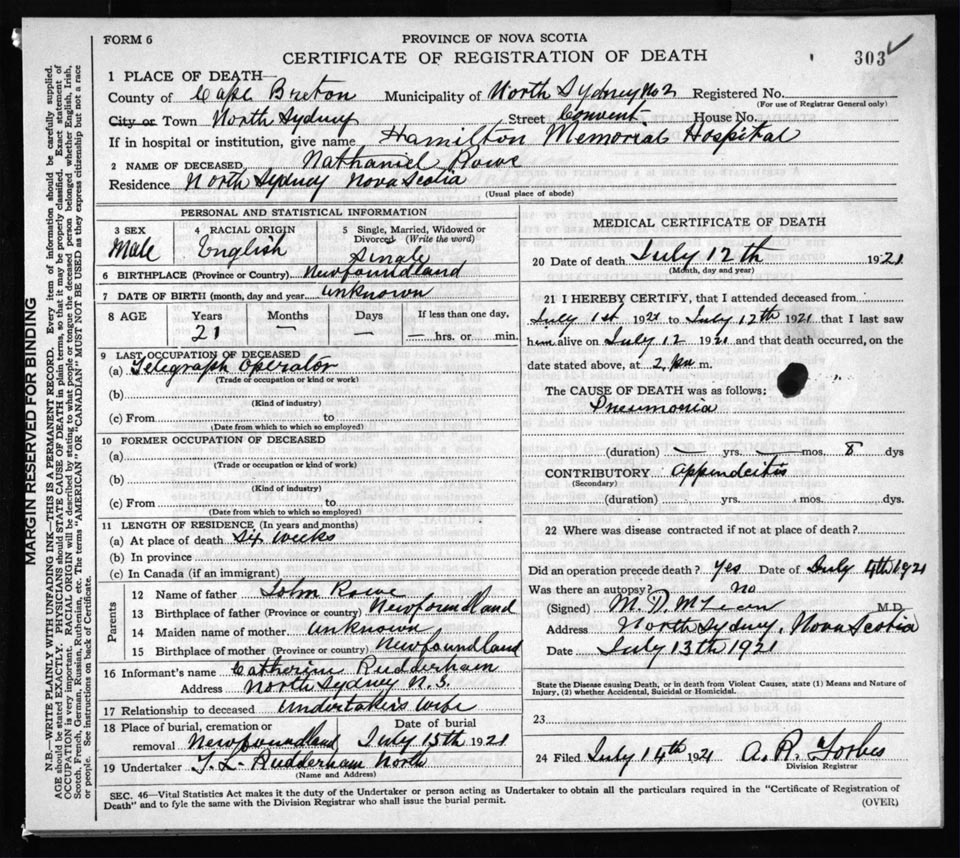 FORM 6
PROVINCE OF NOVA SCOTIA
CERTIFICATE OF REGISTRATION OF DEATH
303
1 PLACE OF DEATH—
County of Cape Breton Municipality of North Sydney No 2 Registered No.
(For use of Registrar General only)
City or Town North Sydney Street Convent House No.
If in hospital or institution, give name Hamilton Memorial Hospital
2 NAME OF DECEASED, Nathaniel Rowe
Residence North Sydney Nova Scotia
(Usual place of abode)
PERSONAL AND STATISTICAL INFORMATION
3 SEX Male
4 RACIAL ORIGIN English
5 Single, Married, Widowed or Divorced (Write the word) Single
6 BIRTHPLACE (Province or Country) Newfoundland
7 DATE OF BIRTH (month, day and year) unknown
8 AGE Years Months Days If less than one day,
21 — — — hrs. or min.
9 LAST OCCUPATION OF DECEASED
(a) Telegraph Operator
(Trade or occupation or kind or work)
(b)
(Kind of industry)
(c) From to
(Date from which to which so employed)
10 FORMER OCCUPATION OF DECEASED
(a)
(Trade or occupation or kind of work)
(b)
(Kind of industry)
(c) From to
(Date from which to which so employed)
11 LENGTH OF RESIDENCE (In years and months)
(a) At place of death Six Weeks
(b) In province
(c) In Canada (if an immigrant)
Parents
12 Name of father John Rowe
13 Birthplace of father (Province or country) Newfoundland
14 Maiden name of mother unknown
15 Birthplace of mother (Province or country) Newfoundland
16 Informant's name Catherine Rudderham
Address North Sydney N.S.
17 Relationship to deceased Undertakers Wife
18 Place of burial, cremation or Date of burial
removal Newfoundland July 15th 1921
19 Undertaker T. L. Rudderham North
(Name and Address)
MEDICAL CERTIFICATE OF DEATH
20 Date of death July 12th 1921
(Month, day and year)
21 I HEREBY CERTIFY, that I attended deceased from
July 1st 1921 to July 12th 1921 that I last saw
him alive on July 12 1921 and that death occurred, on the
date stated above, at 2, pm m.
The CAUSE OF DEATH was as follows:
Pneumonia
(duration) — yrs. — mos. 8 dys
CONTRIBUTORY Appendicitis
(Secondary)
(duration) yrs. mos. dys.
22 Where was disease contracted if not at place of death?
Did an operation precede death? Yes Date of July 4th 1921
Was there an autopsy? No
(Signed) M. D. McLean M.D.
Address North Sydney, Nova Scotia
Date July 13th 1921
State the Disease causing Death, or in death from Violent Causes, state (1) Means and Nature of
Injury, (2) whether Accidental, Suicidal or Homicidal.
23
24 Filed July 14th 1921 A. R. Forbes
Division Registrar
SEC. 46—Vital Statistics Act makes it the duty of the Undertaker or person acting as Undertaker to obtain all the particulars required in the "Certificate of Registration of
Death" and to fyle the same with the Division Registrar who shall issue the burial permit.
(OVER)
MARGIN RESERVED FOR BINDING
N.B.—WRITE PLAINLY WITH UNFADING INK—THIS IS A PERMANENT RECORD. Every item of information should be carefully supplied.
AGE should be stated EXACTLY. PHYSICIANS should STATE CAUSE OF DEATH in plain terms, so that it may be properly classified. Exact statement of
OCCUPATION is very important. RACIAL ORIGIN will be described by stating to what people or tongue the deceased person belonged whether English, Irish,
Scotch, French, German, Russian, Ruthenian, etc. The terms "AMERICAN" OR "CANADIAN" MUST NOT BE USED as they express citizenship but not a race
or people. See instructions on back of Certificate.